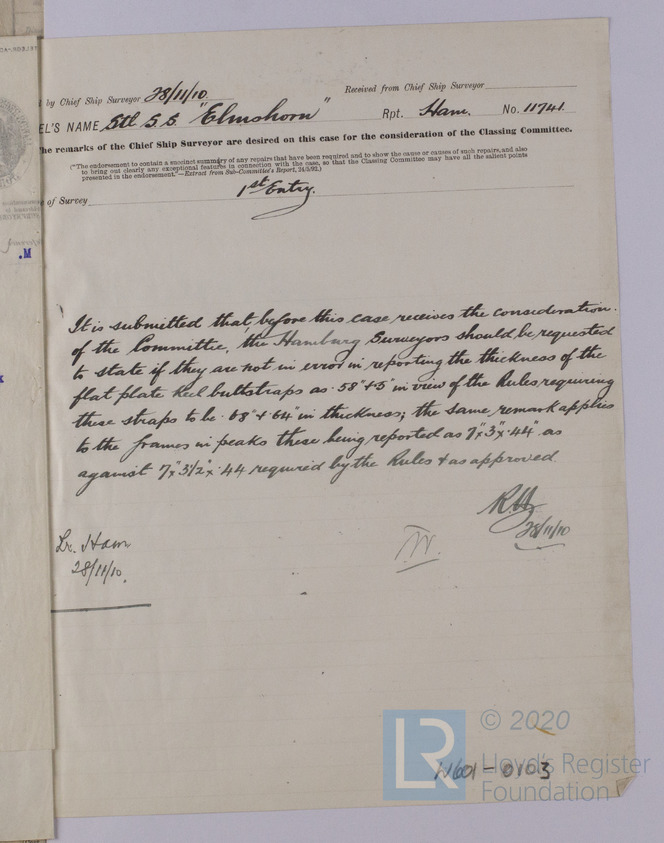 d by Chief Ship Surveyor 28/11/10
Received from Chief Ship Surveyor
EL'S NAME Stl S.S. "Elmshorn" Rpt. Ham. No. 11741.
he remarks of the Chief Ship Surveyor are desired on this case for the consideration of the Classing Committee.
("The endorsement to contain a succinct summary of any repairs that have been required and to show the cause or causes of such repairs, and also
to bring out clearly any exceptional features in connection with the case, so that the Classing Committee may have all the salient points
presented in the endorsement."—Extract from Sub-Committee's Report, 24/3/92.)
e of Survey 1st Entry.
.M
It is submitted that, before this case receives the consideration
of the Committee, the Hamburg Surveyors should be requested
to state if they are not in error in reporting the thickness of the
flat plate keel buttstraps as .58" & .5" in view of the Rules requiring
these straps to be .68" & .64" in thickness; the same remark applies
to the frames in peaks these being reported as 7" x 3" x .44" as
against 7" x 3 1/2" x .44 required by the Rules & as approved.
28/11/10
Lr. Ham
28/11/10.
© 2020
LR
Lloyd's Register
Foundation
W601-0103